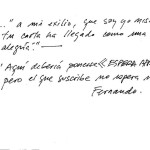 ..." a mi exilio, que soy yo mism
tu carta ha llegado como una
alegría." —
"Aquí debería ponerse « ESPERA
pero el que suscribe no espera n
Fernando.